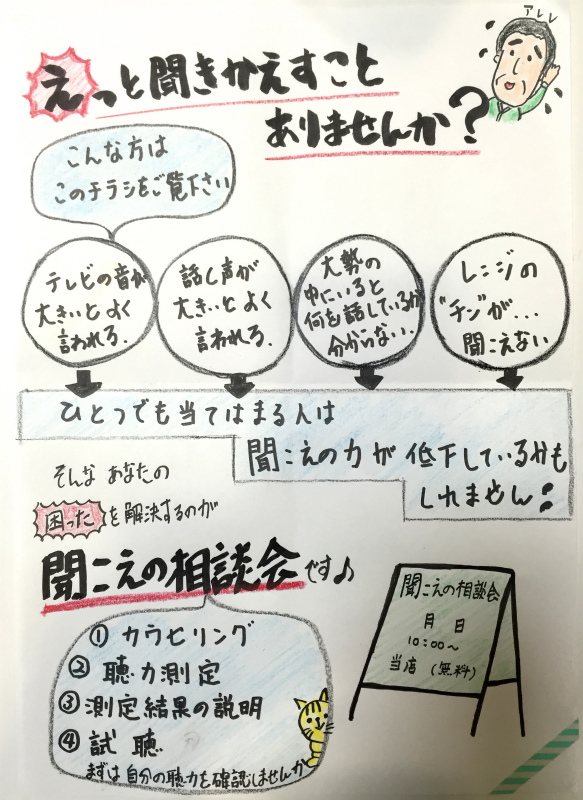 アレレ
えっと聞きかえすこと
ありませんか?
こんな方は
このチラシをご覧下さい
テレビの音が
大きいとよく
言われる.
話し声が
大きいとよく
言われる.
大勢の
中にいると
何を話しているか
分からない.
レンジの
"チン"が...
聞こえない
ひとつでも当てはまる人は
聞こえの力が低下しているかも
しれません!
そんなあなたの
困ったを解決するのが
聞こえの相談会です♪
① カウセリング
② 聴力測定
③ 測定結果の説明
④ 試聴
まずは自分の聴力を確認しませんか
聞こえの相談会
月 日
10:00〜
当店 (無料)